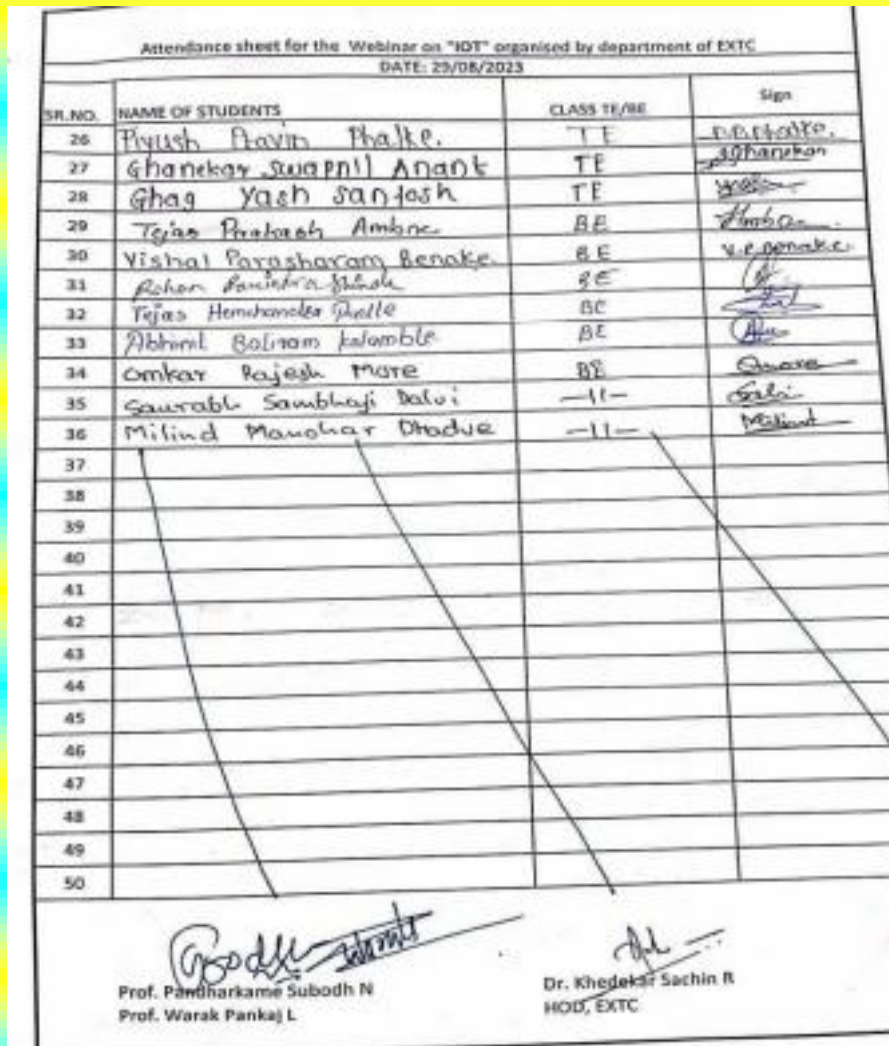 Attendance sheet for the Webinar on "IOT" organised by department of EXTC
DATE: 29/08/2023
SR.NO. NAME OF STUDENTS CLASS TE/BE Sign
26 Piyush Pravin Phalke. TE P.P.Phalke.
27 Ghanekar Swapnil Anant TE SGhanekar
28 Ghag Yash Santosh TE
29 Tejas Prakash Ambre BE
30 Vishal Parasharam Benake. BE V.P.Benake.
31 Rohan Ravindra Shinde BE
32 Tejas Hemchandra BE
33 Baliram Kalamble BE
34 Omkar Rajesh More BE
35 Saurabh Sambhaji Dalvi —11—
36 Milind Manohar Dhadve —11— Milind
37
38
39
40
41
42
43
44
45
46
47
48
49
50
Prof. Pandharkame Subodh N Dr. Khedekar Sachin R
Prof. Warak Pankaj L HOD, EXTC